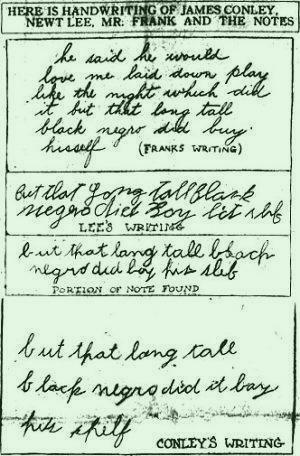 HERE IS HANDWRITING OF JAMES CONLEY,
NEWT LEE, MR. FRANK AND THE NOTES
he said he would
love me laid down play
like the night witch did
it but that long tall
black negro did buy
hisself (FRANKS WRITING)
But that long tall Black
negro did Boy his slef
LEE'S WRITING
but that long tall black
negro did boy his slef
PORTION OF NOTE FOUND
but that long tall
black negro did it bay
his shelf
CONLEY'S WRITING